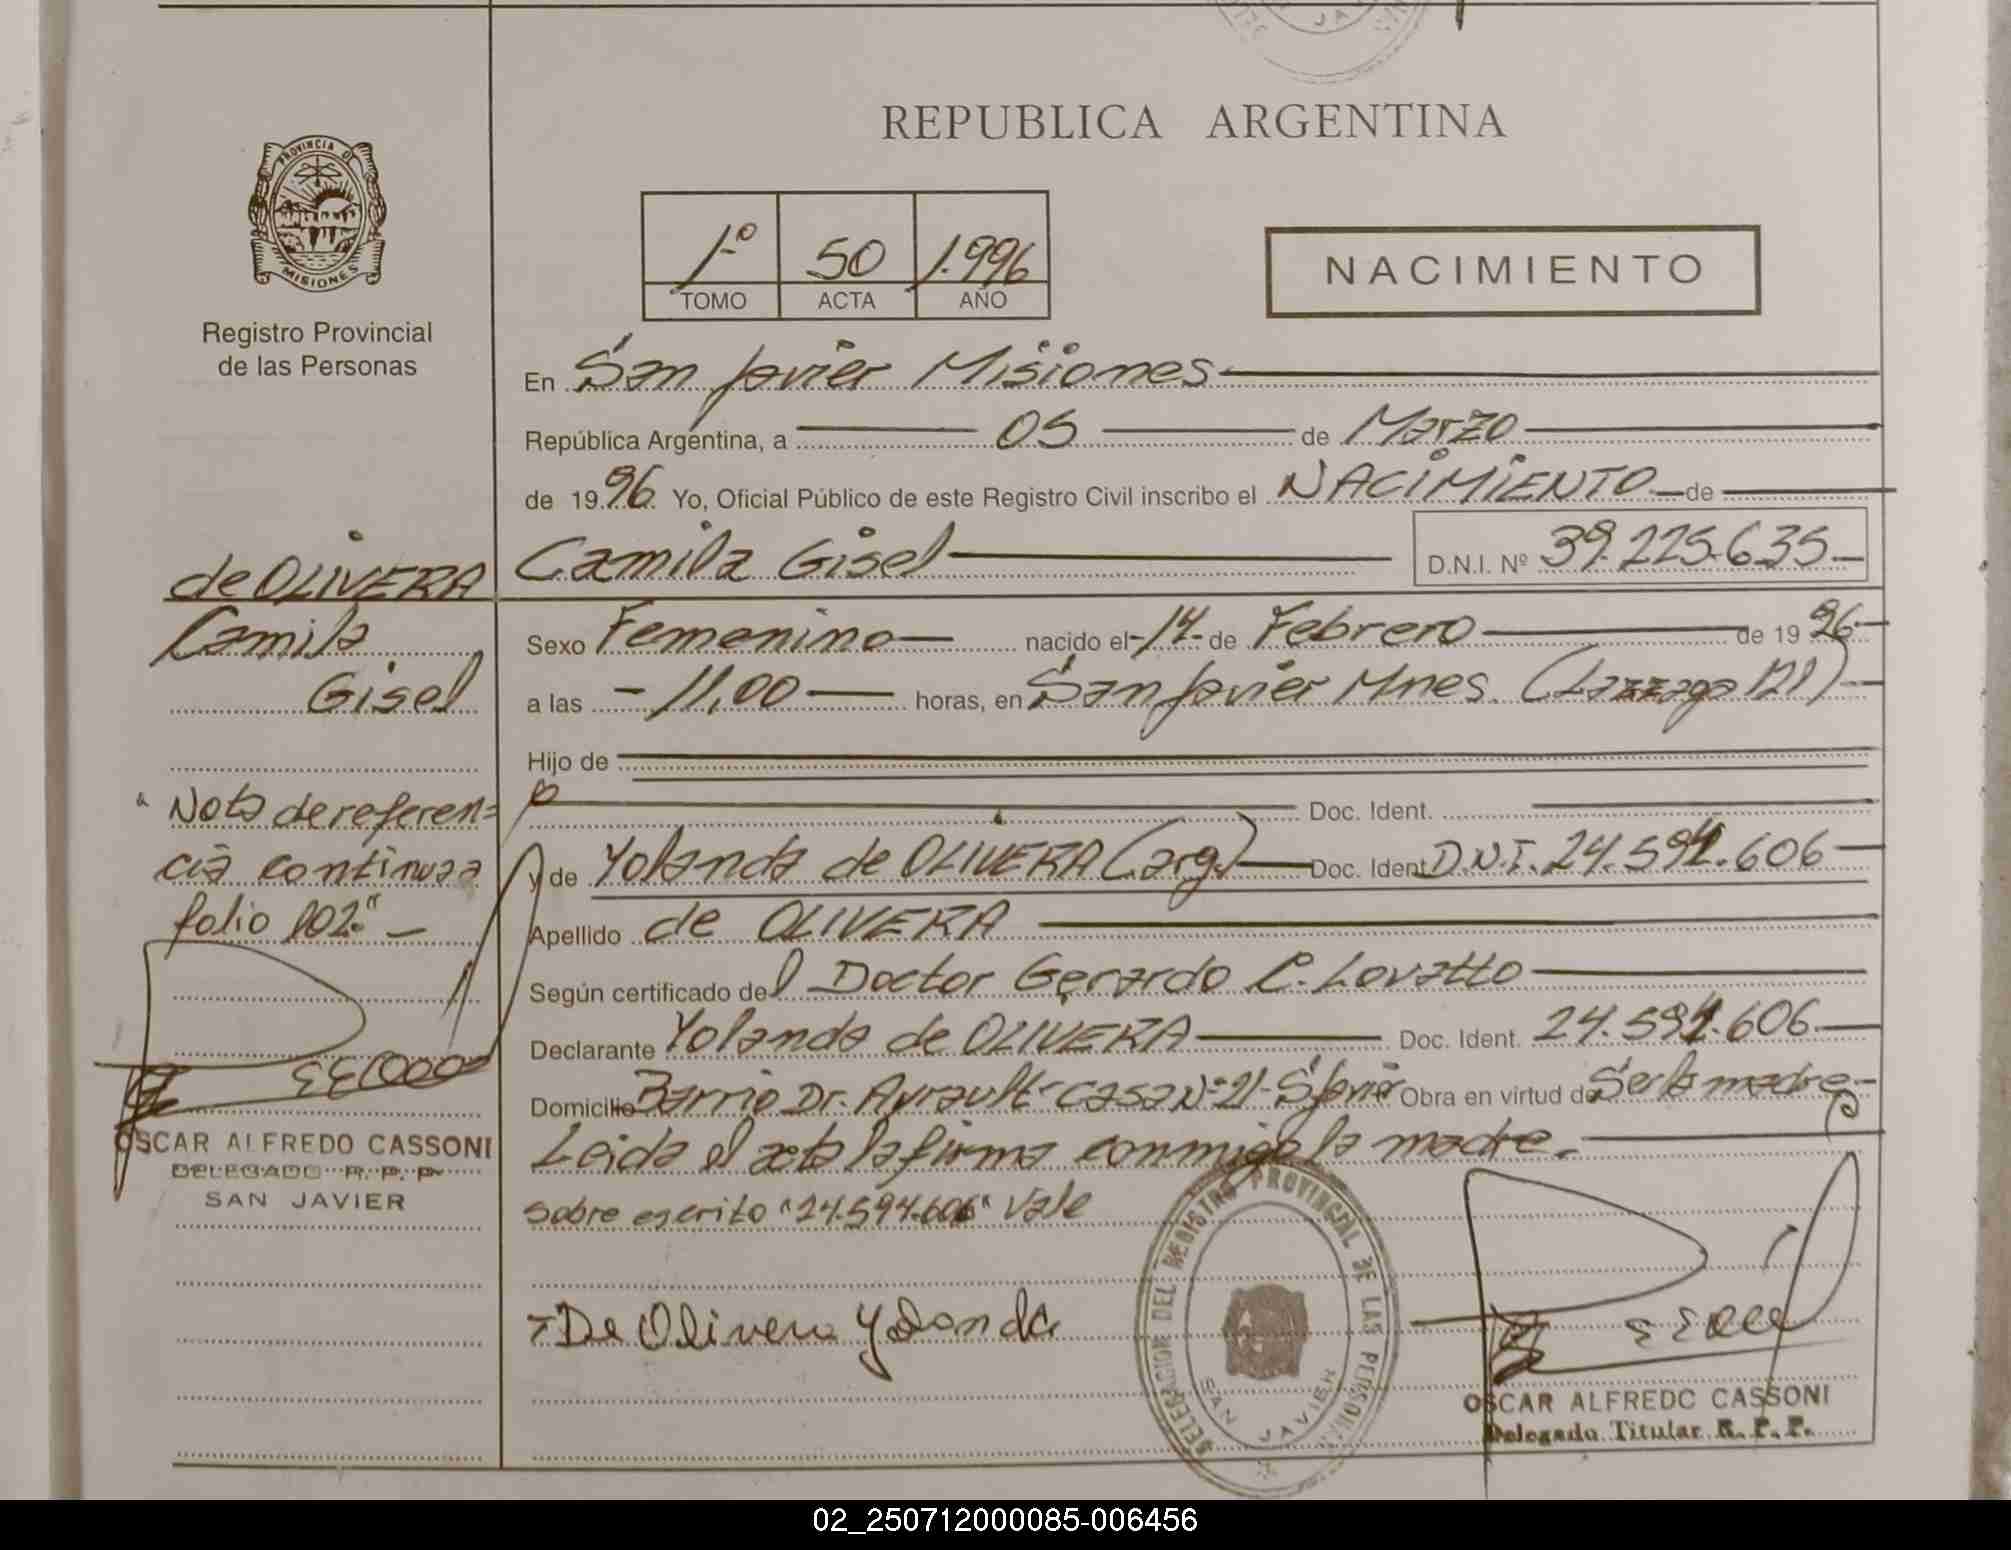 REPUBLICA ARGENTINA
PROVINCIA DE
MISIONES
Registro Provincial
de las Personas
1º 50 1.996
TOMO ACTA AÑO
NACIMIENTO
En San Javier Misiones
República Argentina, a 05 de Marzo
de 1996 Yo, Oficial Público de este Registro Civil inscribo el NACIMIENTO de
Camila Gisel D.N.I. Nº 39.225.635
de OLIVERA
Camila
Gisel
Sexo Femenino nacido el 14 de Febrero de 1996
a las 11,00 horas, en San Javier Mnes.
Hijo de
Doc. Ident.
y de Yolanda de OLIVERA (arg.) Doc. Ident. D.N.I. 24.594.606
Apellido de OLIVERA
Según certificado del Doctor Gerardo C. Lovatto
Declarante Yolanda de OLIVERA Doc. Ident. 24.594.606
Domicilio Barrio Dr. Ayrault casa Nº 21 S. Javier Obra en virtud de Ser la madre
Leida el acta la firma conmigo la madre.
sobre escrito "24.594.606" Vale
"Nota de referen-
cia continua a
folio 102."
OSCAR ALFREDO CASSONI
DELEGADO R. P. P.
SAN JAVIER
De Olivera Yolanda
DELEGACION DEL REGISTRO PROVINCIAL DE LAS PERSONAS
SAN JAVIER
OSCAR ALFREDO CASSONI
Delegado Titular R. P. P.
02_250712000085-006456